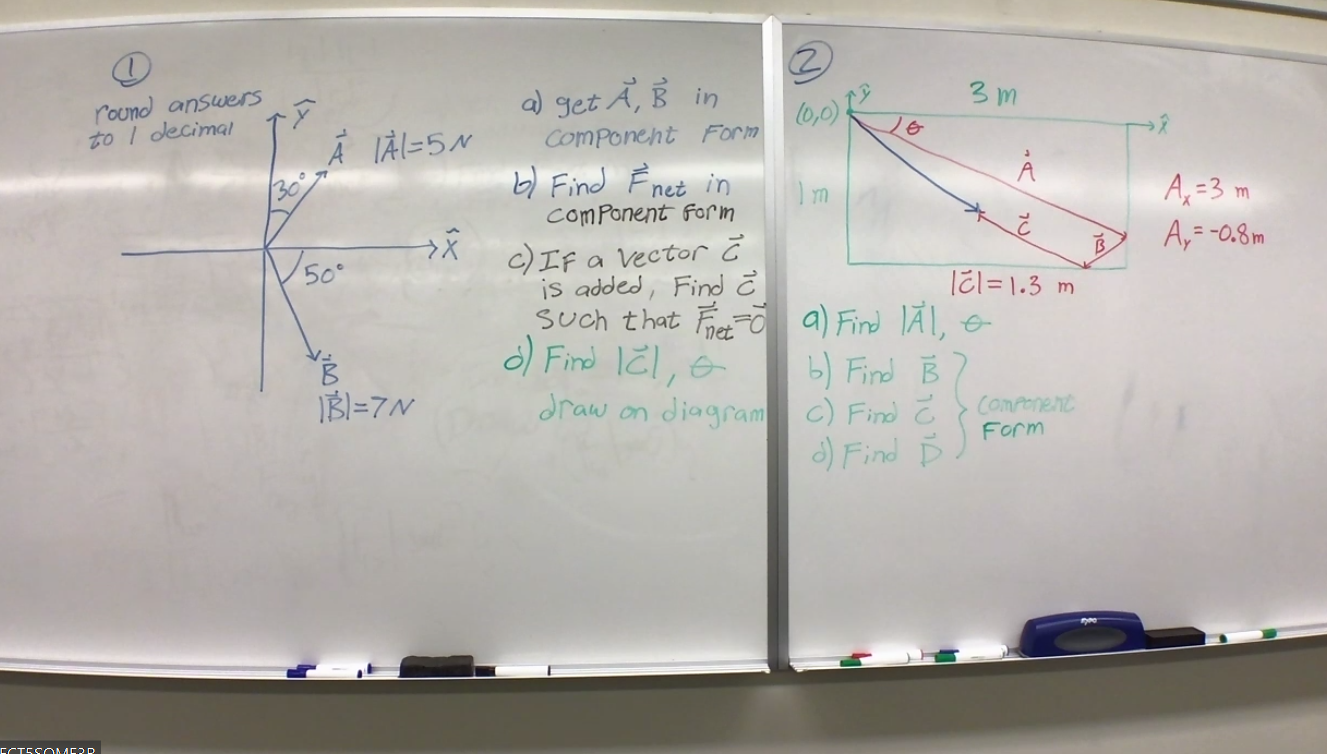 ①
round answers
to 1 decimal
ŷ
A⃗ |A⃗|=5N
30°
x̂
50°
B⃗
|B⃗|=7N
a) get A⃗, B⃗ in
component Form
b) Find F⃗net in
component form
c) IF a vector C⃗
is added, Find C⃗
such that F⃗net=0⃗
d) Find |C⃗|, θ
draw on diagram
②
ŷ
3 m
(0,0)
θ
x̂
A⃗
1 m
C⃗
B⃗
Aₓ=3 m
Aᵧ=-0.8m
|C⃗|=1.3 m
a) Find |A⃗|, θ
b) Find B⃗
c) Find C⃗
d) Find D⃗
component
Form